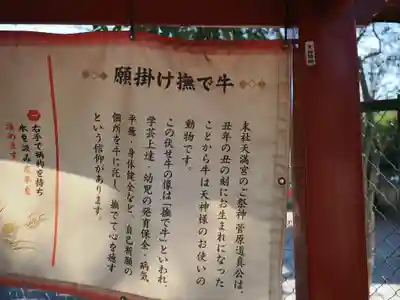 願掛け撫で牛
末社天満宮のご祭神 菅原道真公は、
丑年の丑の刻にお生まれになった
ことから牛は天神様のお使いの
動物です。
この伏せ牛の像は「撫で牛」といわれ、
学芸上達・幼児の発育保全・病気
平癒・身体健全など、自己祈願の
個所を牛に託し、撫でて心を施す
という信仰があります。
一
右手で柄杓を持ち
水を汲み左手を
清めます